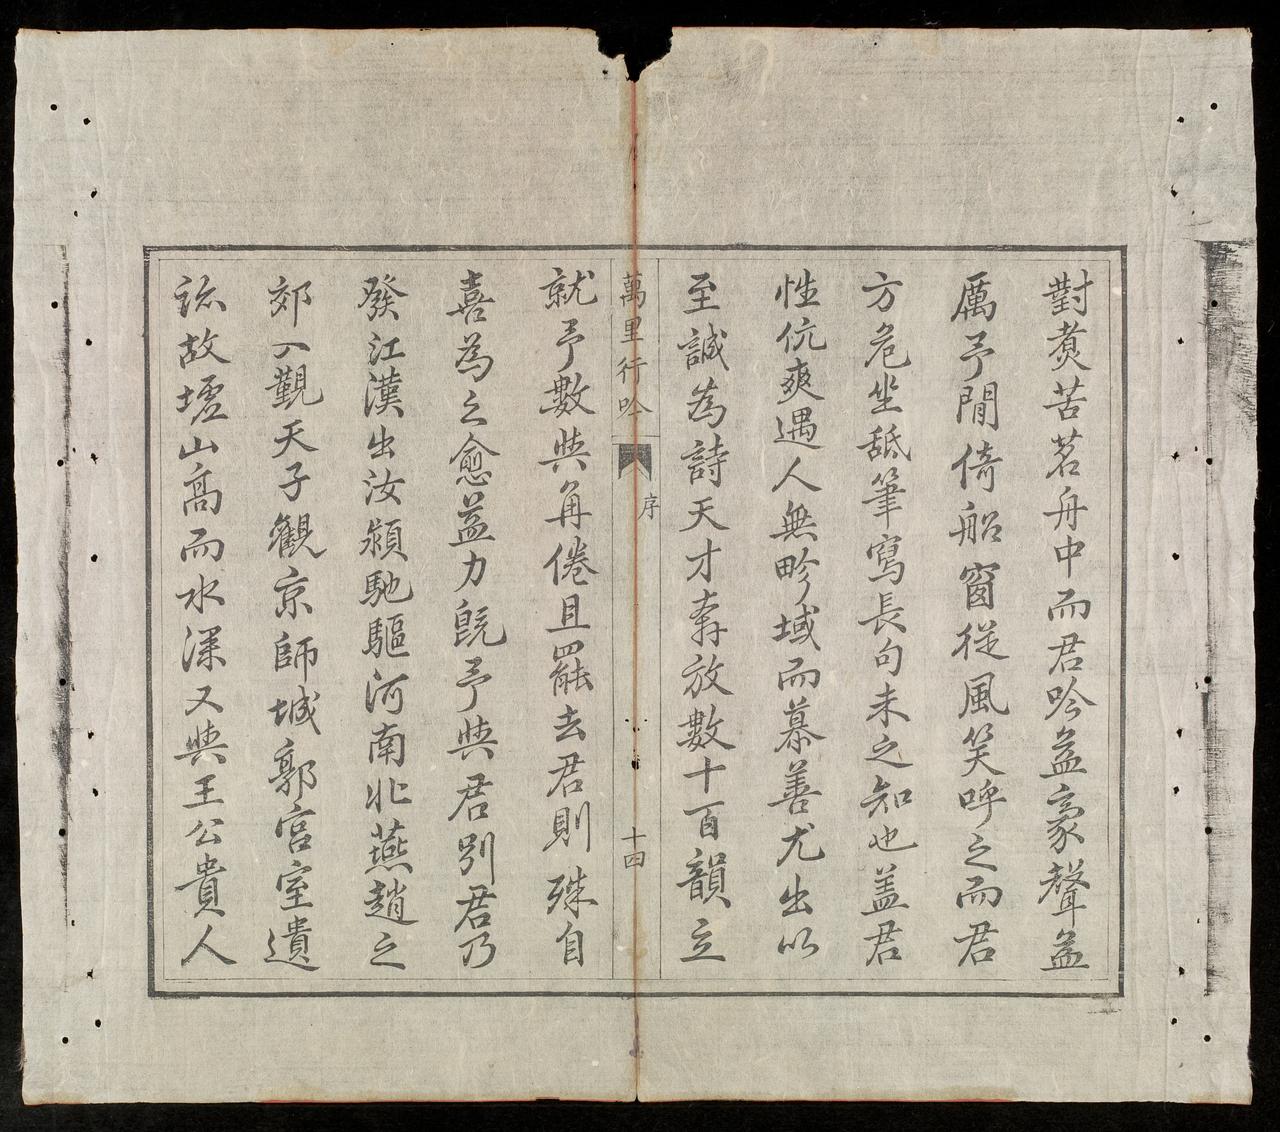 對煑苦茗舟中而君吟益豪聲益
厲予閒倚船窗從風笑呼之而君
方危坐舐筆寫長句未之知也盖君
性伉爽遇人無畛域而慕善尤出以
至誠為詩天才奔放數十百韻立
萬里行吟
序
十四
就予數與角倦且罷去君則殊自
喜為之愈益力既予與君別君乃
發江漢出汝潁馳驅河南北燕趙之
郊入覲天子觀京師城郭宮室遺
跡故墟山高而水深又與王公貴人